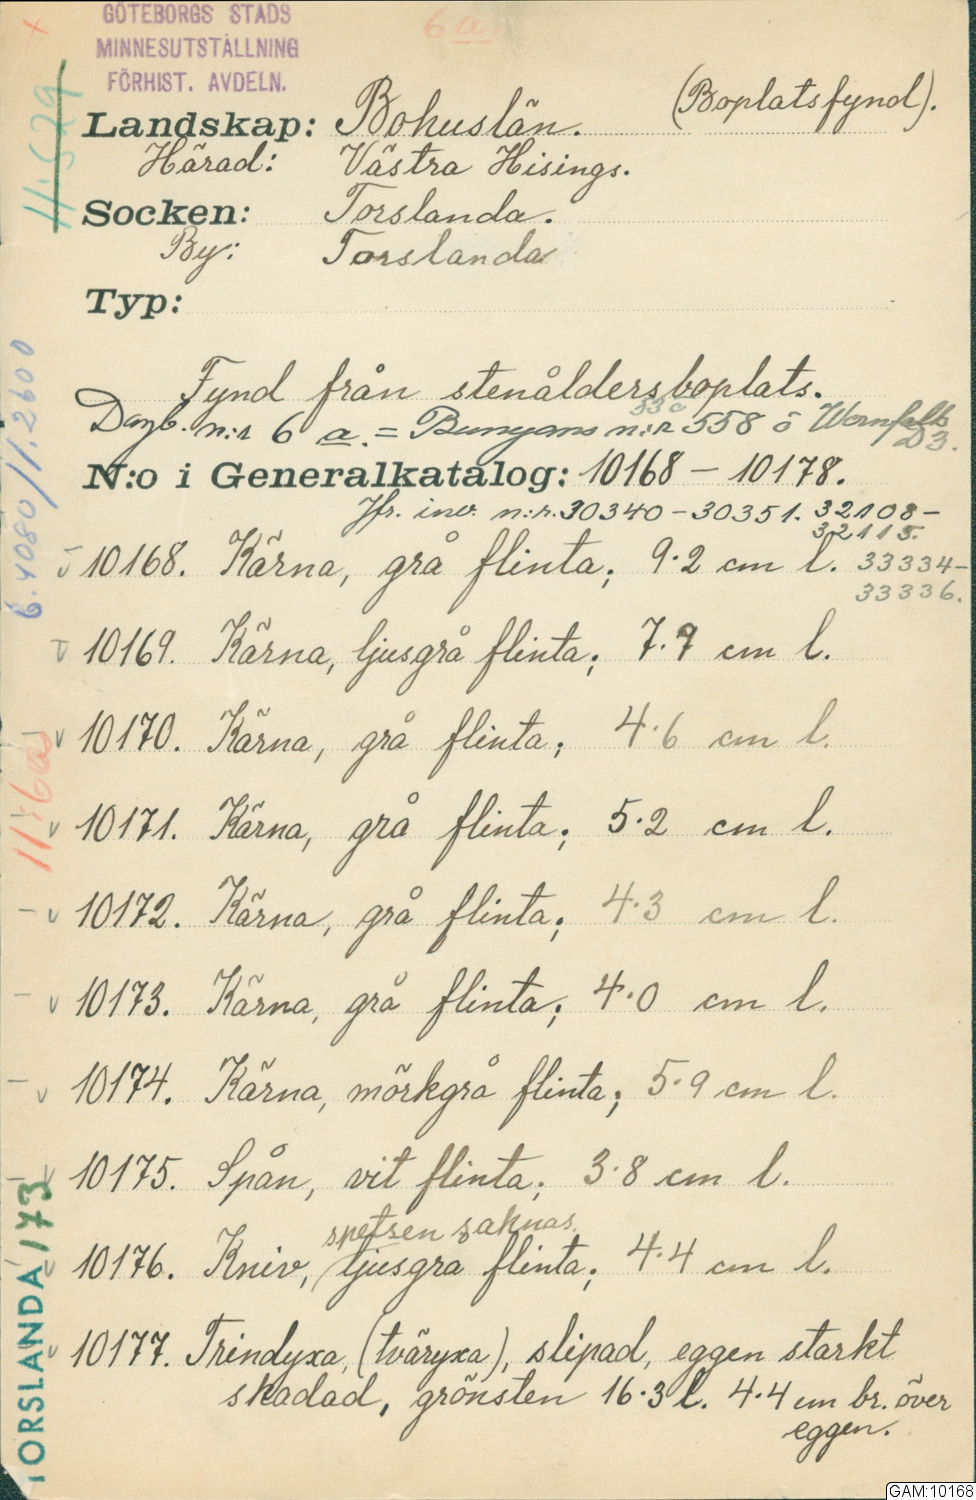 GÖTEBORGS STADS
MINNESUTSTÄLLNING
FÖRHIST. AVDELN.
6a
(Boplatsfynd).
Landskap: Bohuslän.
Härad: Västra Hisings.
Socken: Torslanda.
By: Torslanda
Typ:
Fynd från stenåldersboplats.
n:r 6 a. = Bunyans n:r 558 ö
D3.
N:o i Generalkatalog: 10168 – 10178.
Jfr. inv. n:r. 30340 – 30351. 32108 –
32115.
33334 –
33336.
10168. Kärna, grå flinta; 9.2 cm l.
10169. Kärna, ljusgrå flinta; 7.9 cm l.
10170. Kärna, grå flinta; 4.6 cm l.
10171. Kärna, grå flinta; 5.2 cm l.
10172. Kärna, grå flinta; 4.3 cm l.
10173. Kärna, grå flinta; 4.0 cm l.
10174. Kärna, mörkgrå flinta; 5.9 cm l.
10175. Spån, vit flinta; 3.8 cm l.
spetsen saknas.
10176. Kniv, ljusgrå flinta; 4.4 cm l.
10177. Trindyxa, (tväryxa), slipad, eggen starkt
skadad, grönsten 16.3 l. 4.4 cm br. över
eggen.
TORSLANDA 173
GAM:10168